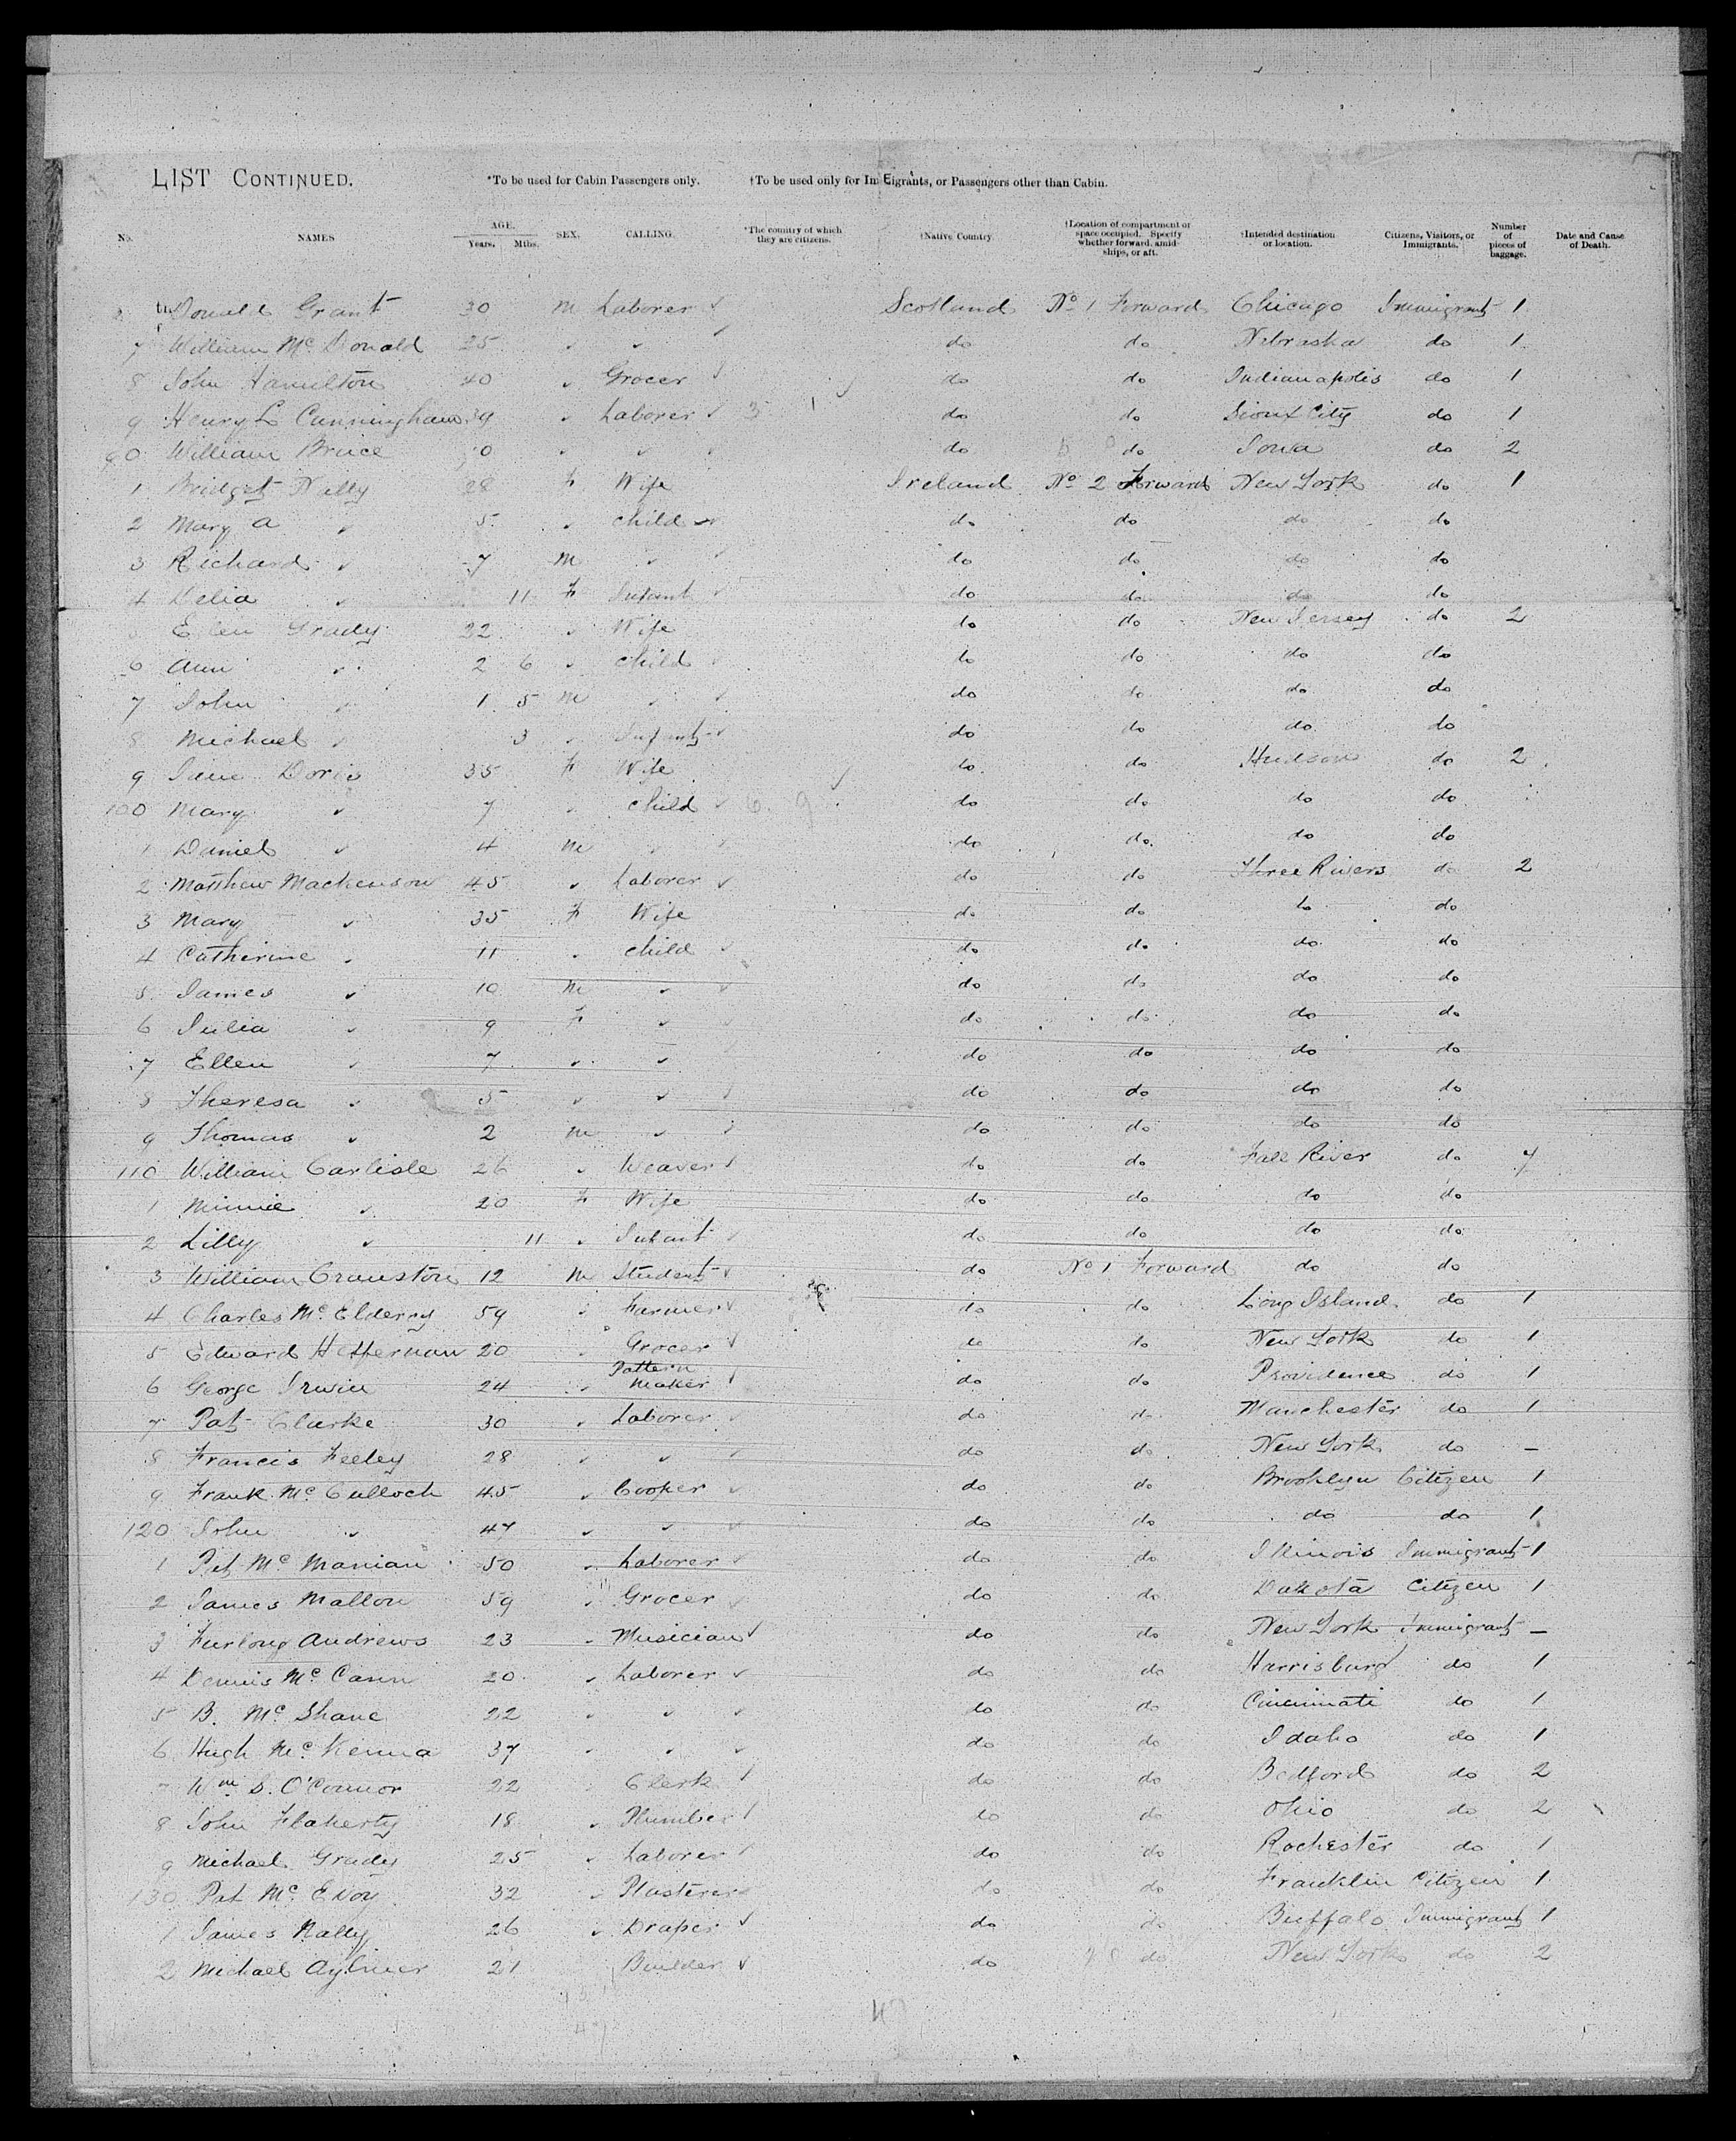 LIST CONTINUED. *To be used for Cabin Passengers only. †To be used only for Im Eigrants, or Passengers other than Cabin.
No. NAMES AGE. Years. Mths. SEX. CALLING. *The country of which they are citizens. †Native Country. †Location of compartment or space occupied. Specify whether forward, amid-ships, or aft. †Intended destination or location. Citizens, Visitors, or Immigrants. Number of pieces of baggage. Date and Cause of Death.
Donald Grant 30 m Laborer ✓ Scotland No 1 Forward Chicago Immigrant 1
7 William Mc Donald 25 ✓ ✓ ✓ do do Nebraska do 1
8 John Hamilton 40 ✓ Grocer ✓ do do Indianapolis do 1
9 Henry L Cunningham 39 ✓ Laborer ✓ do do Sioux City do 1
90 William Bruce ✓ ✓ ✓ do do Iowa do 2
1 Bridget Nally 28 F Wife Ireland No 2 Forward New York do 1
2 Mary A ✓ 5 ✓ child ✓ do do do do
3 Richard ✓ 7 m ✓ ✓ do do do do
4 Delia ✓ 11 F Infant ✓ do do do do
5 Ellen Grady 22 ✓ Wife do do New Jersey do 2
6 Ann ✓ 2 6 ✓ child ✓ do do do do
7 John ✓ 1 5 m ✓ ✓ do do do do
8 Michael ✓ 3 ✓ Infant ✓ do do do do
9 Jane Doris 35 F Wife do do Hudson do 2
100 Mary ✓ 7 ✓ child ✓ do do do do
1 Daniel ✓ 4 m ✓ ✓ do do do do
2 Matthew Mackenson 45 ✓ Laborer ✓ do do Three Rivers do 2
3 Mary ✓ 35 F Wife do do do do
4 Catherine ✓ 11 ✓ child ✓ do do do do
5 James ✓ 10 m ✓ ✓ do do do do
6 Julia ✓ 9 F ✓ do do do do
7 Ellen ✓ 7 ✓ ✓ do do do do
8 Theresa ✓ 5 ✓ ✓ ✓ do do do do
9 Thomas ✓ 2 m ✓ ✓ do do do do
110 William Carlisle 26 ✓ Weaver ✓ do do Fall River do 7
1 Minnie ✓ 20 F Wife do do do do
2 Lilly ✓ 11 ✓ Infant ✓ do do do do
3 William Cranston 12 m Student ✓ do No 1 Forward do do
4 Charles Mc Elderry 59 ✓ Farmer ✓ do do Long Island do 1
5 Edward Heffernan 20 ✓ Grocer ✓ do do New York do 1
6 George Irwin 24 ✓ Pattern Maker ✓ do do Providence do 1
7 Pat Clarke 30 ✓ Laborer ✓ do do Manchester do 1
8 Francis Feeley 28 ✓ ✓ ✓ do do New York do –
9 Frank Mc Culloch 45 ✓ Cooper ✓ do do Brooklyn Citizen 1
120 John ✓ 47 ✓ ✓ ✓ do do do do 1
1 Pat Mc Manian 50 ✓ Laborer ✓ do do Illinois Immigrant 1
2 James Mallon 59 ✓ Grocer ✓ do do Dakota Citizen 1
3 Furlong Andrews 23 ✓ Musician ✓ do do New York Immigrant –
4 Dennis Mc Cann 20 ✓ Laborer ✓ do do Harrisburg do 1
5 B. Mc Shane 22 ✓ ✓ ✓ do do Cincinnati do 1
6 Hugh Mc Kenna 37 ✓ ✓ ✓ do do Idaho do 1
7 Wm S. O'Connor 22 Clerk ✓ do do Bedford do 2
8 John Flaherty 18 ✓ Plumber ✓ do do Ohio do 2
9 Michael Grady 25 ✓ Laborer ✓ do do Rochester do 1
130 Pat Mc Evoy 32 ✓ Plasterer ✓ do do Franklin Citizen 1
1 James Nally 26 ✓ Draper ✓ do do Buffalo Immigrant 1
2 Michael Aylmer 21 Builder ✓ do do New York do 2